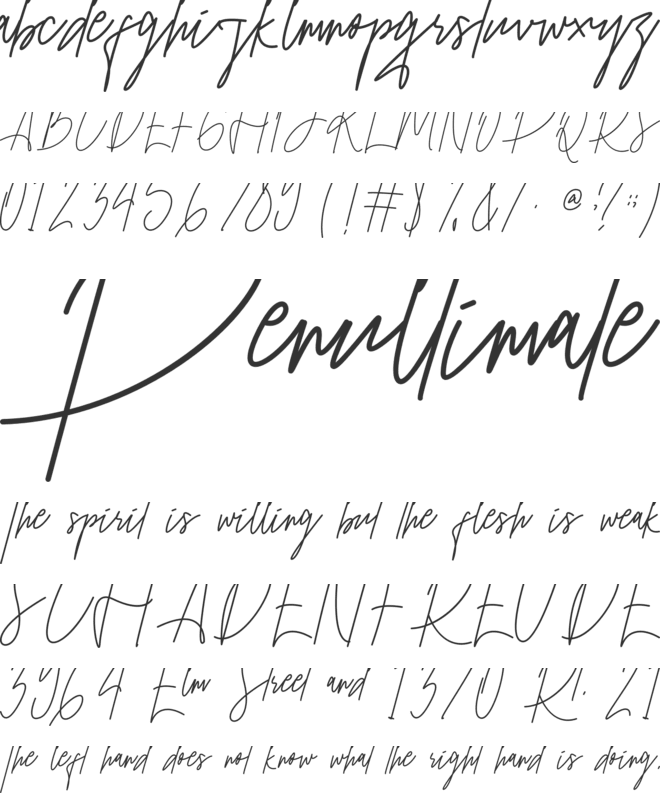 abcdefghijklmnopqrstuvwxyz
ABCDEFGHIJKLMNOPQRS
0123456789 (!#$%&/. @;?/:;)
Penultimate
The spirit is willing but the flesh is weak
SCHADENFREUDE
3964 Elm Street and 1370 Rt. 21
The left hand does not know what the right hand is doing.